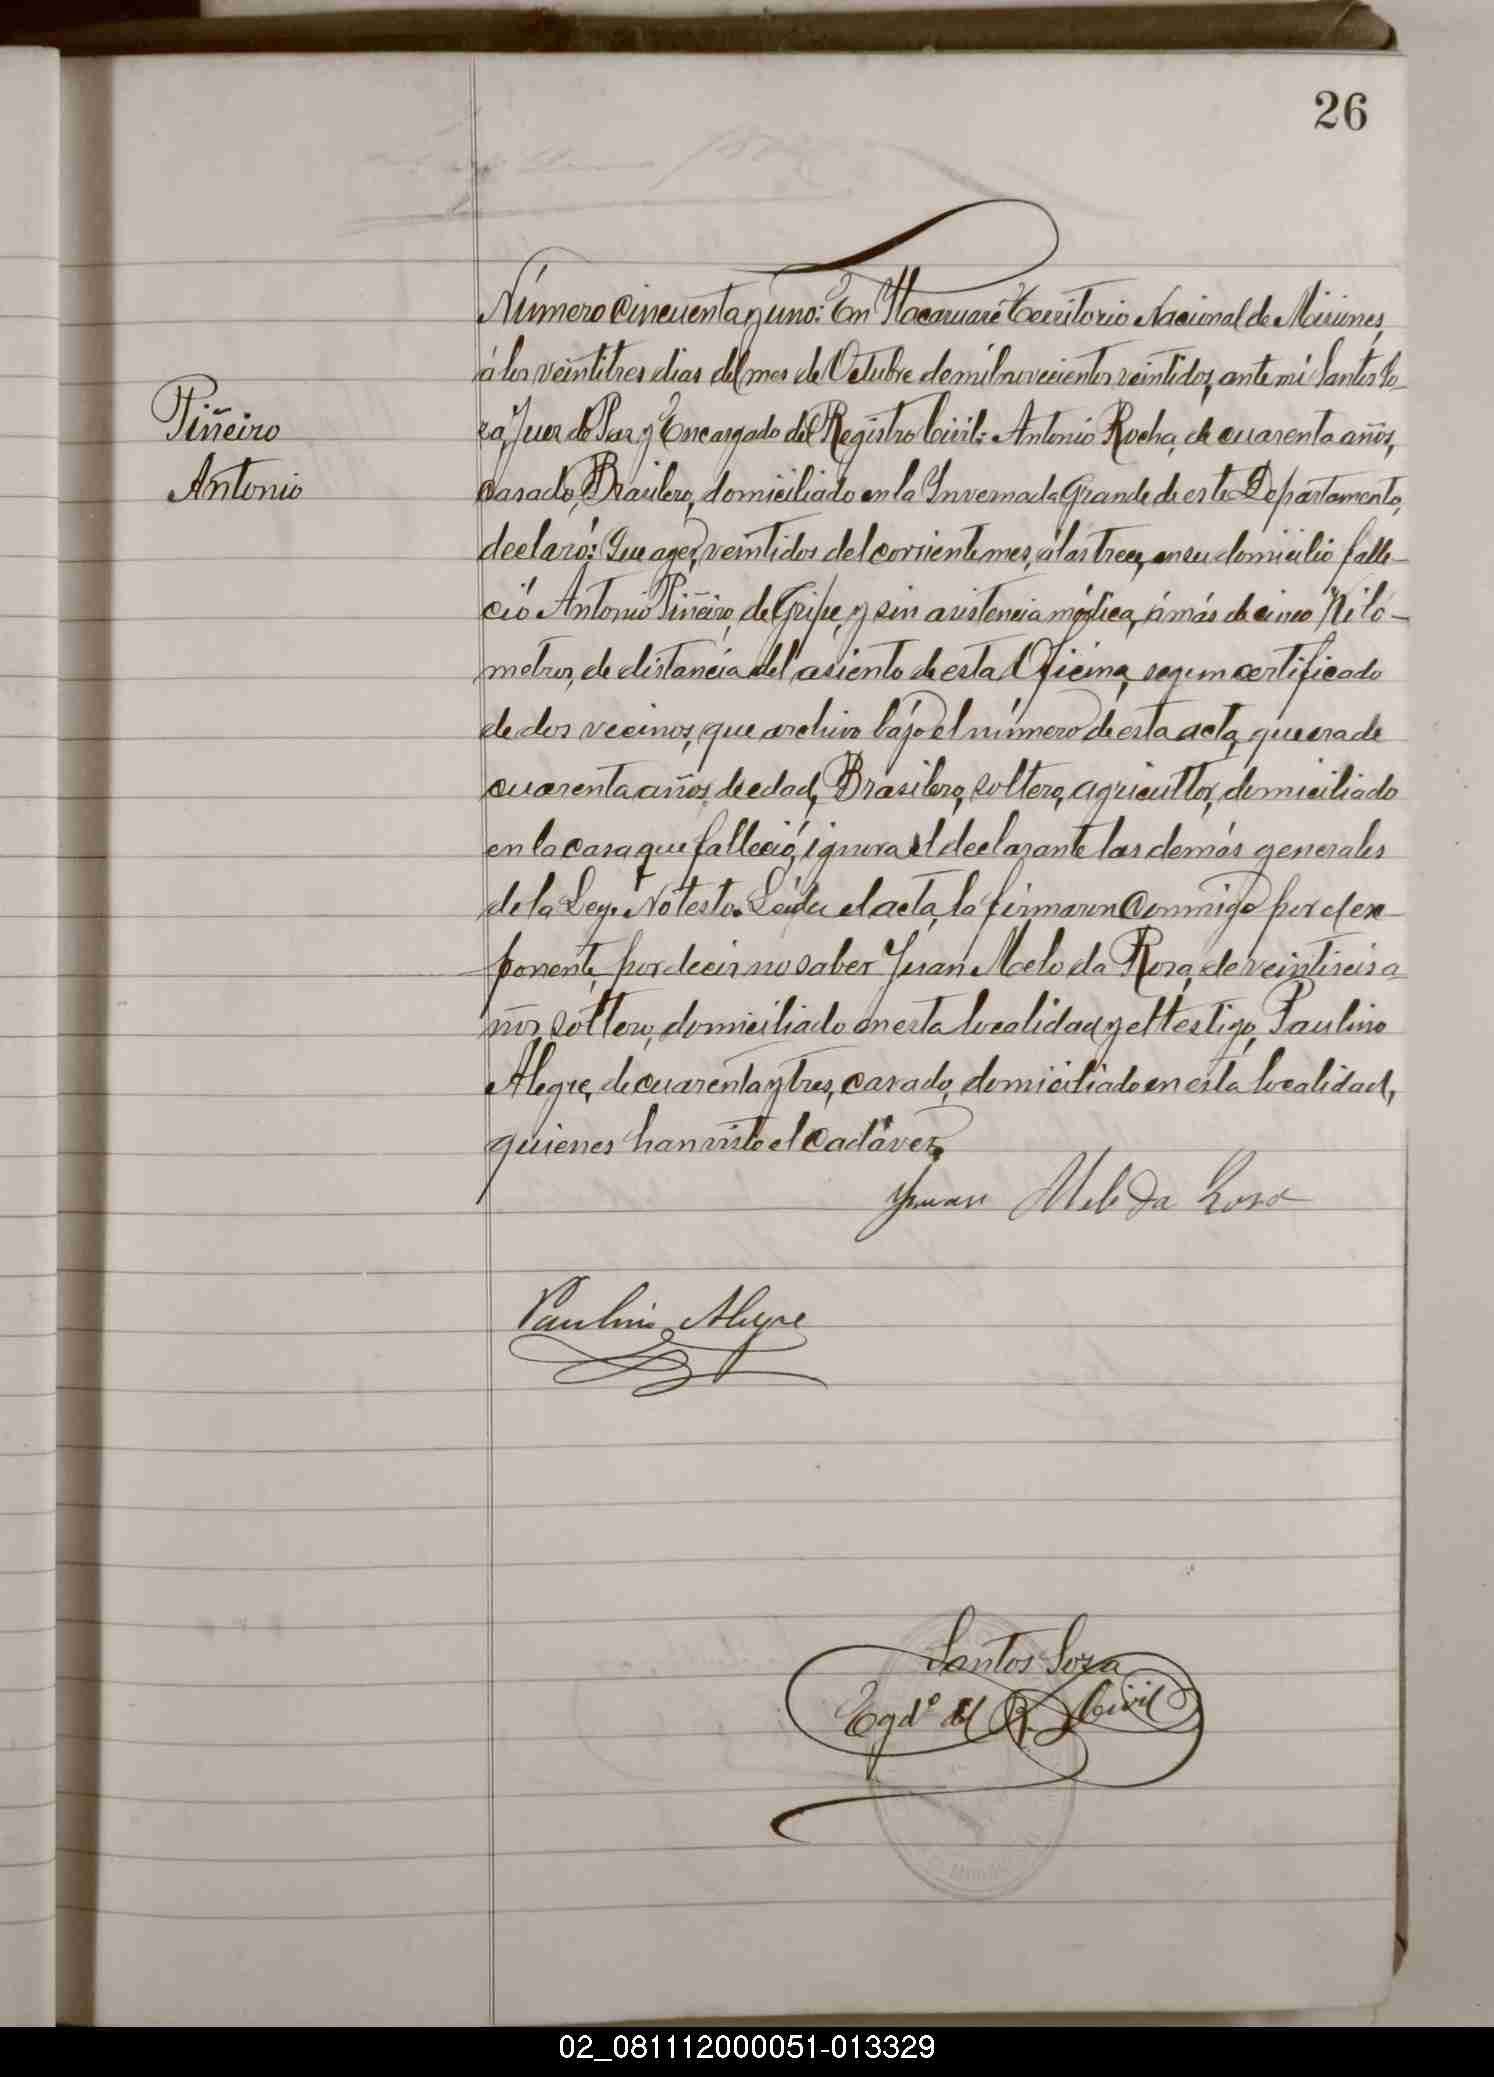 26
Número cincuenta y uno: En Itacaruaré Territorio Nacional de Misiones,
á los veintitres dias del mes de Octubre de mil novecientos veintidos, ante mí Santos So-
za, Juez de Paz y Encargado del Registro Civil: Antonio Rocha, de cuarenta años,
Piñeiro
Antonio
casado, Brasilero, domiciliado en la Invernada Grande de este Departamento,
declaró: Que ayer, veintidos del corriente mes, á las trece, en su domicilio falle-
ció Antonio Piñeiro, de Gripe, y sin asistencia médica, á más de cinco Kiló-
metros, de distancia del asiento de esta Oficina, segun certificado
de dos vecinos, que archivo bájo el número de esta acta, que era de
cuarenta años de edad, Brasilero, soltero, agricultor, domiciliado
en la casa que falleció, ignora el declarante las demás generales
de la Ley. No testo. Leída el acta, la firmaron conmigo por el ex-
ponente, por decir no saber Juan Melo da Rosa, de veintiseis a-
ños, soltero, domiciliado en esta localidad y el testigo, Paulino
Alegre, de cuarenta y tres, casado, domiciliado en esta localidad,
quienes han visto el cadáver.
Juan Melo da Rosa
Paulino Alegre
Santos Soza
Egdo del R. Civil
02_081112000051-013329